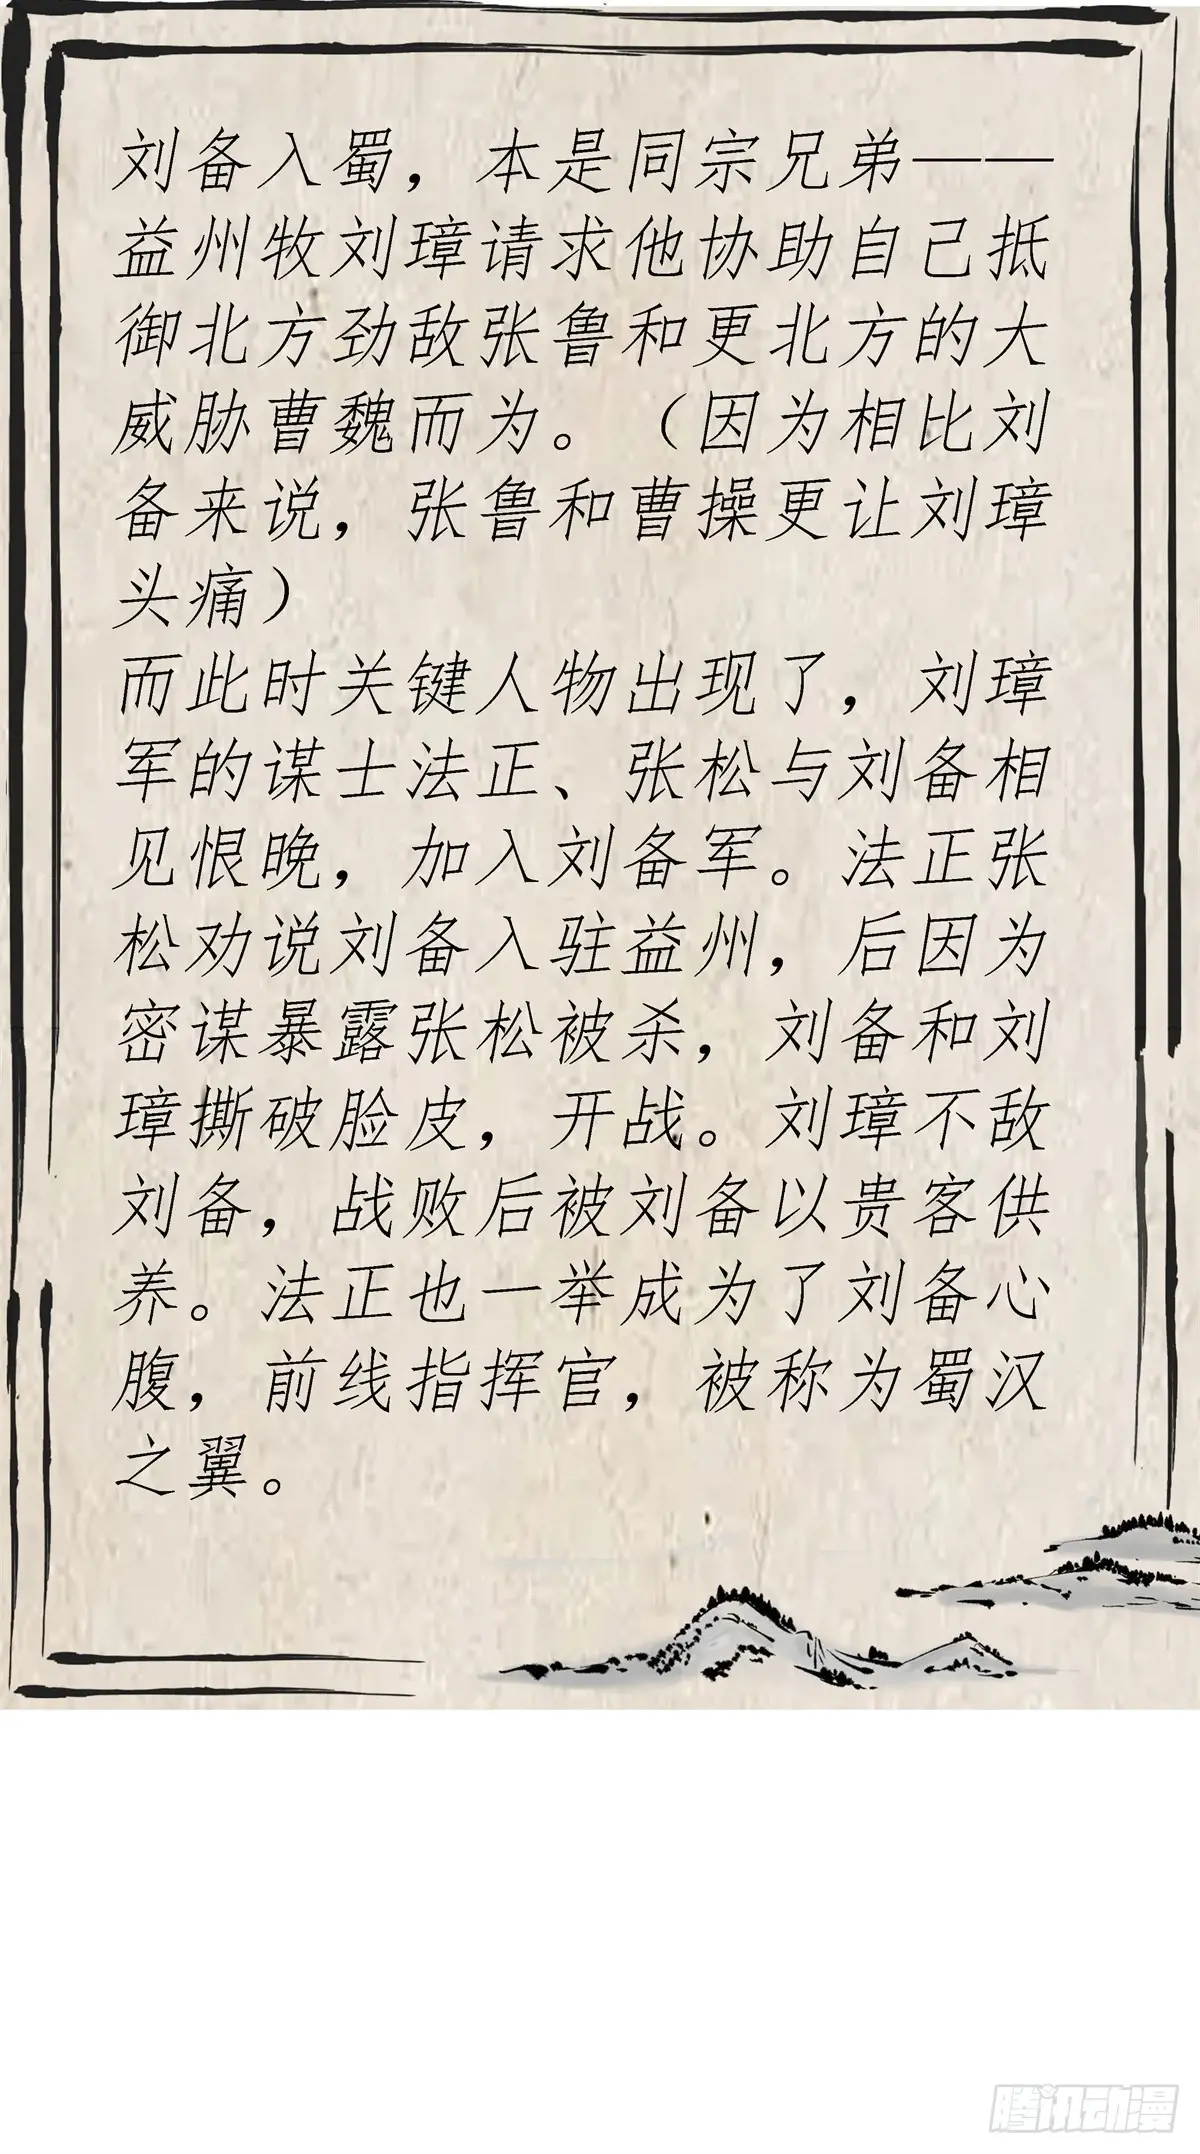 刘备入蜀，本是同宗兄弟——
益州牧刘璋请求他协助自己抵
御北方劲敌张鲁和更北方的大
威胁曹魏而为。（因为相比刘
备来说，张鲁和曹操更让刘璋
头痛）
而此时关键人物出现了，刘璋
军的谋士法正、张松与刘备相
见恨晚，加入刘备军。法正张
松劝说刘备入驻益州，后因为
密谋暴露张松被杀，刘备和刘
璋撕破脸皮，开战。刘璋不敌
刘备，战败后被刘备以贵客供
养。法正也一举成为了刘备心
腹，前线指挥官，被称为蜀汉
之翼。
腾讯动漫